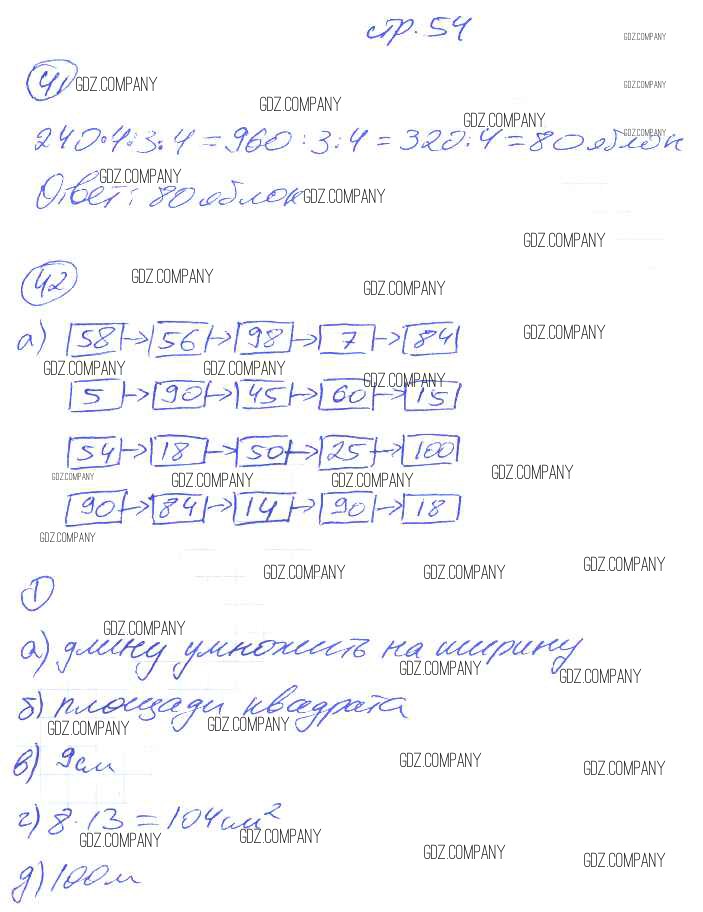 стр. 54
GDZ.COMPANY
41 GDZ.COMPANY
GDZ.COMPANY
GDZ.COMPANY
GDZ.COMPANY
240·4:3:4 = 960 : 3 : 4 = 320 : 4 = 80 яблок
GDZ.COMPANY
GDZ.COMPANY
Ответ: 80 яблок GDZ.COMPANY
GDZ.COMPANY
42 GDZ.COMPANY
GDZ.COMPANY
а) 58 → 56 → 98 → 7 → 84 GDZ.COMPANY
GDZ.COMPANY GDZ.COMPANY GDZ.COMPANY
5 → 90 → 45 → 60 → 15
54 → 18 → 50 → 25 → 100
GDZ.COMPANY GDZ.COMPANY GDZ.COMPANY GDZ.COMPANY
90 → 84 → 14 → 90 → 18
GDZ.COMPANY
GDZ.COMPANY GDZ.COMPANY GDZ.COMPANY
1
GDZ.COMPANY
а) длину умножить на ширину
GDZ.COMPANY GDZ.COMPANY
б) площади квадрата
GDZ.COMPANY GDZ.COMPANY
в) 9 см GDZ.COMPANY GDZ.COMPANY
г) 8 · 13 = 104 см²
GDZ.COMPANY GDZ.COMPANY
GDZ.COMPANY GDZ.COMPANY
д) 100 м